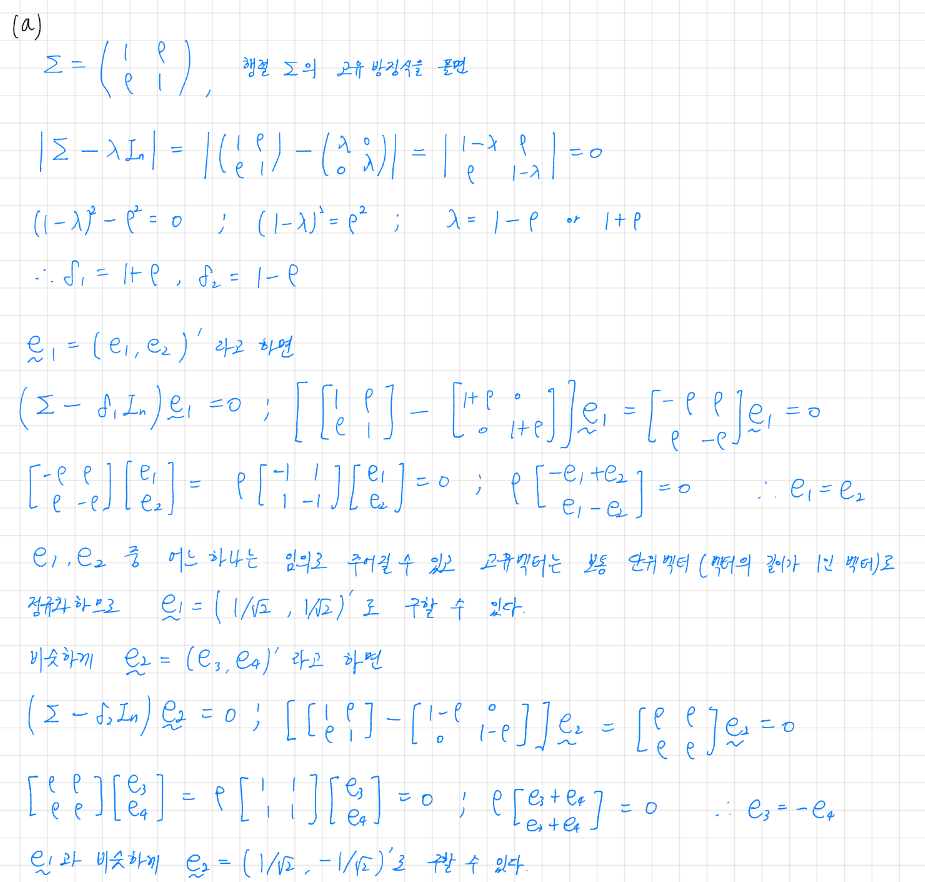 (a)
Σ = ( 1 ρ ; ρ 1 ), 행렬 Σ의 고유방정식을 풀면
|Σ - λIn| = |( 1 ρ ; ρ 1 ) - ( λ 0 ; 0 λ )| = | 1-λ ρ ; ρ 1-λ | = 0
(1-λ)² - ρ² = 0 ; (1-λ)² = ρ² ; λ = 1-ρ or 1+ρ
∴ δ₁ = 1+ρ , δ₂ = 1-ρ
ḛ₁ = (e₁, e₂)′ 라고 하면
(Σ - δ₁In) ḛ₁ = 0 ; [ [ 1 ρ ; ρ 1 ] - [ 1+ρ 0 ; 0 1+ρ ] ] ḛ₁ = [ -ρ ρ ; ρ -ρ ] ḛ₁ = 0
[ -ρ ρ ; ρ -ρ ] [ e₁ ; e₂ ] = ρ [ -1 1 ; 1 -1 ] [ e₁ ; e₂ ] = 0 ; ρ [ -e₁+e₂ ; e₁-e₂ ] = 0 ∴ e₁ = e₂
e₁, e₂ 중 어느 하나는 임의로 주어질 수 있고 고유벡터는 보통 단위벡터 (벡터의 길이가 1인 벡터)로
정규화하므로 ḛ₁ = (1/√2 , 1/√2)′ 로 구할 수 있다.
비슷하게 ḛ₂ = (e₃, e₄)′ 라고 하면
(Σ - δ₂In) ḛ₂ = 0 ; [ [ 1 ρ ; ρ 1 ] - [ 1-ρ 0 ; 0 1-ρ ] ] ḛ₂ = [ ρ ρ ; ρ ρ ] ḛ₂ = 0
[ ρ ρ ; ρ ρ ] [ e₃ ; e₄ ] = ρ [ 1 1 ; 1 1 ] [ e₃ ; e₄ ] = 0 ; ρ [ e₃+e₄ ; e₃+e₄ ] = 0 ∴ e₃ = -e₄
ḛ₁과 비슷하게 ḛ₂ = (1/√2 , -1/√2)′로 구할 수 있다.